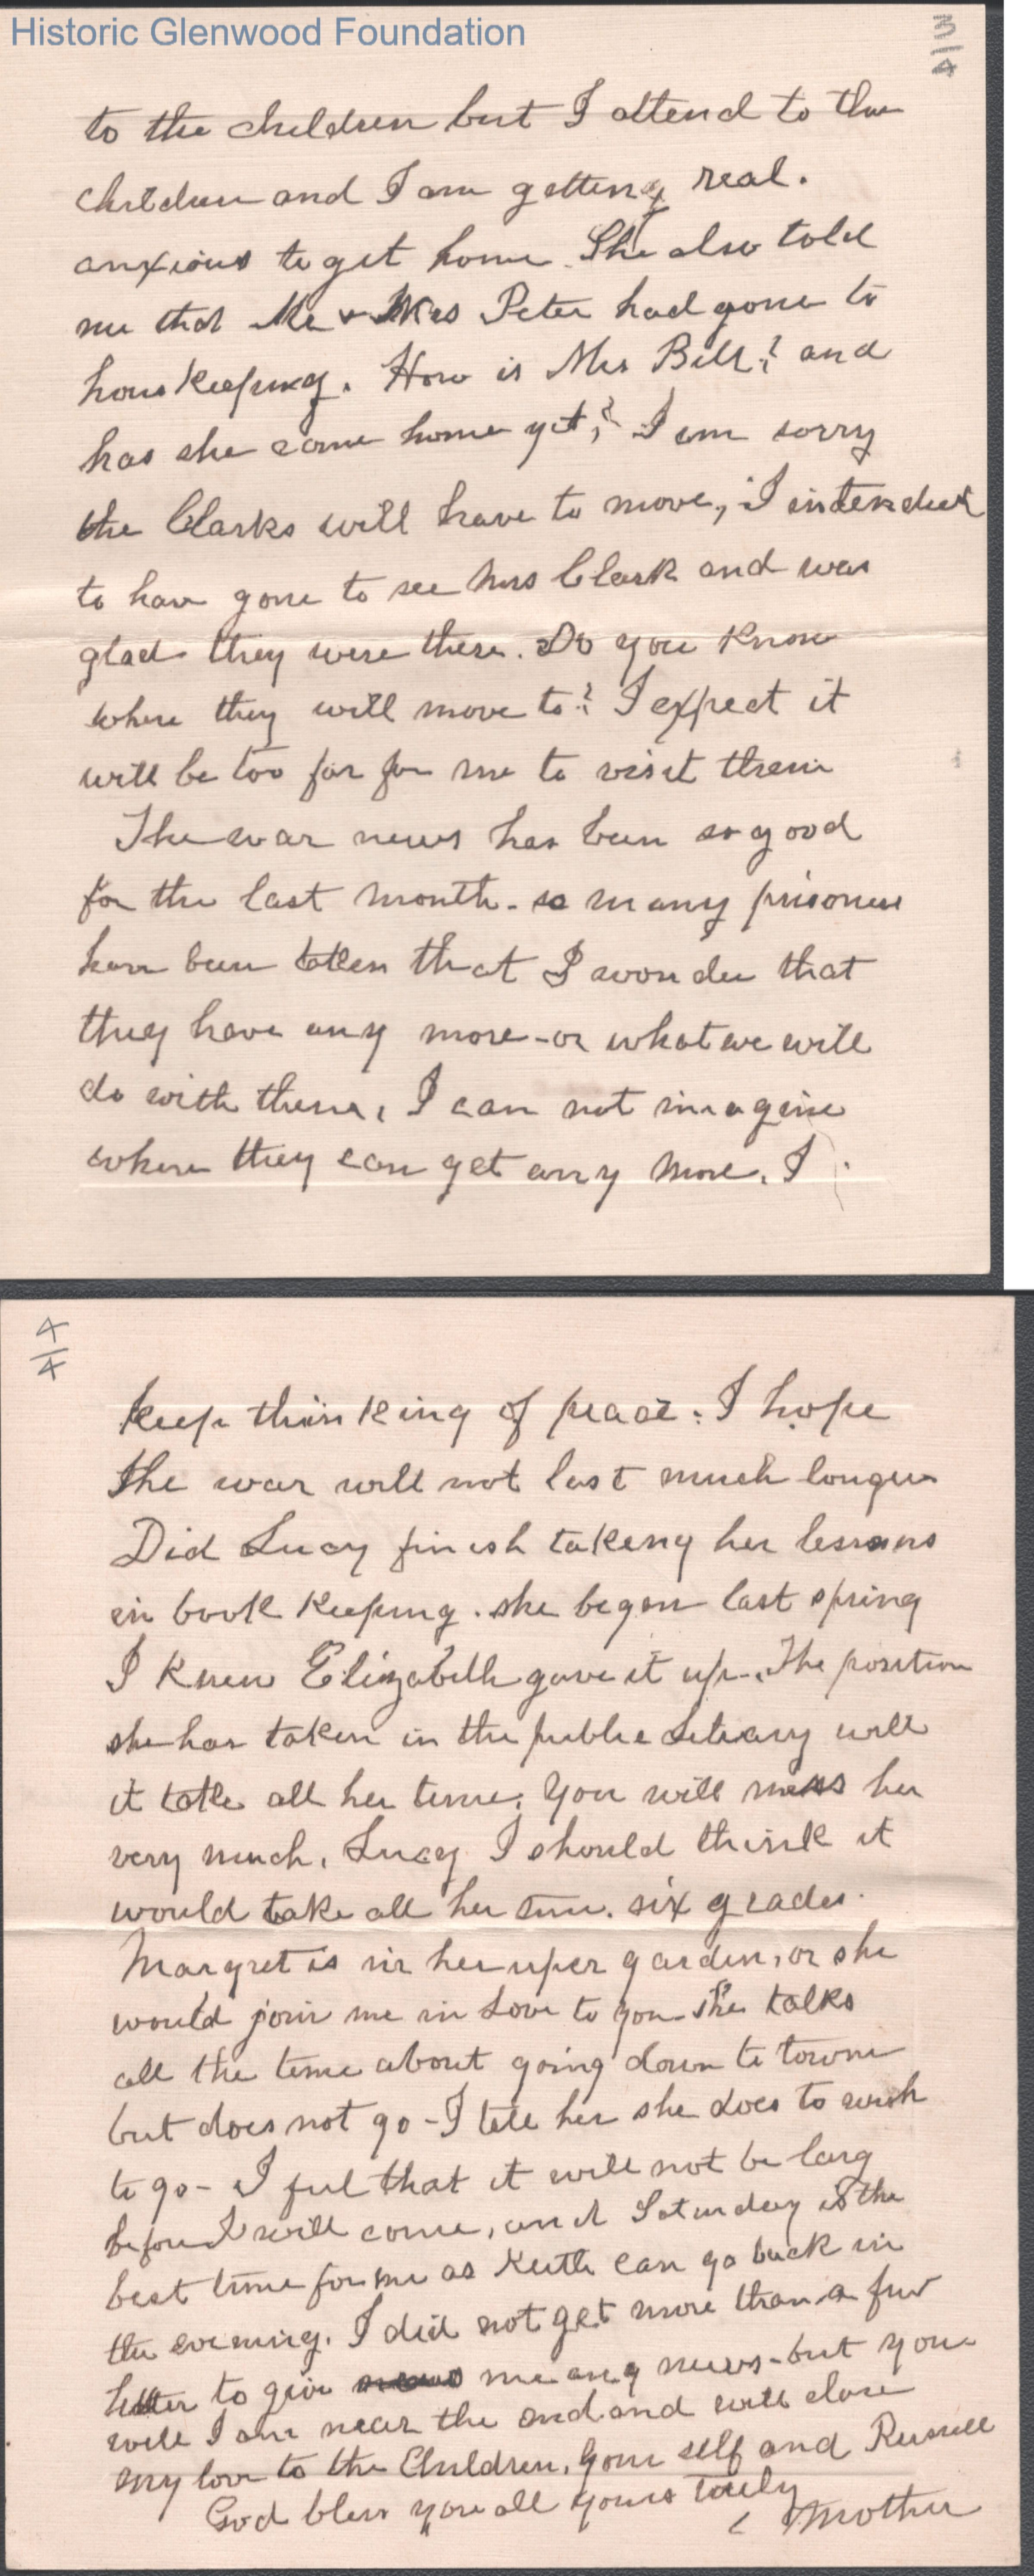 Historic Glenwood Foundation
3/4
to the children but I attend to the
children and I am getting real.
anxious to get home. She also told
me that Mr & Mrs Peter had gone to
houskeeping. How is Mrs Bell? and
has she come home yet? I am sorry
the Clarks will have to move, I intended
to have gone to see Mrs Clark and was
glad they were there. Do you know
where they will move to? I expect it
will be too far for me to visit them
The war news has been so good
for the last month - so many prisoners
have been taken that I wonder that
they have any more - or what we will
do with them, I can not imagine
where they can get any more. I
4/4
keep thinking of peace. I hope
the war will not last much longer
Did Lucy finish taking her lessons
in book keeping. she began last spring
I knew Elizabeth gave it up. The position
she has taken in the public library will
it take all her time. You will miss her
very much, Lucy I should think it
would take all her time. six grades.
Margret is in her uper garden, or she
would join me in love to you. She talks
all the time about going down to town
but does not go - I tell her she does to wish
to go - I feel that it will not be long
before I will come, and Saturday is the
best time for me as Keith can go back in
the evening. I did not get more than a few
letter to give me any news - but you
will I am near the end and will close
my love to the Children, your self and Russell
God bless you all yours truly
Mother